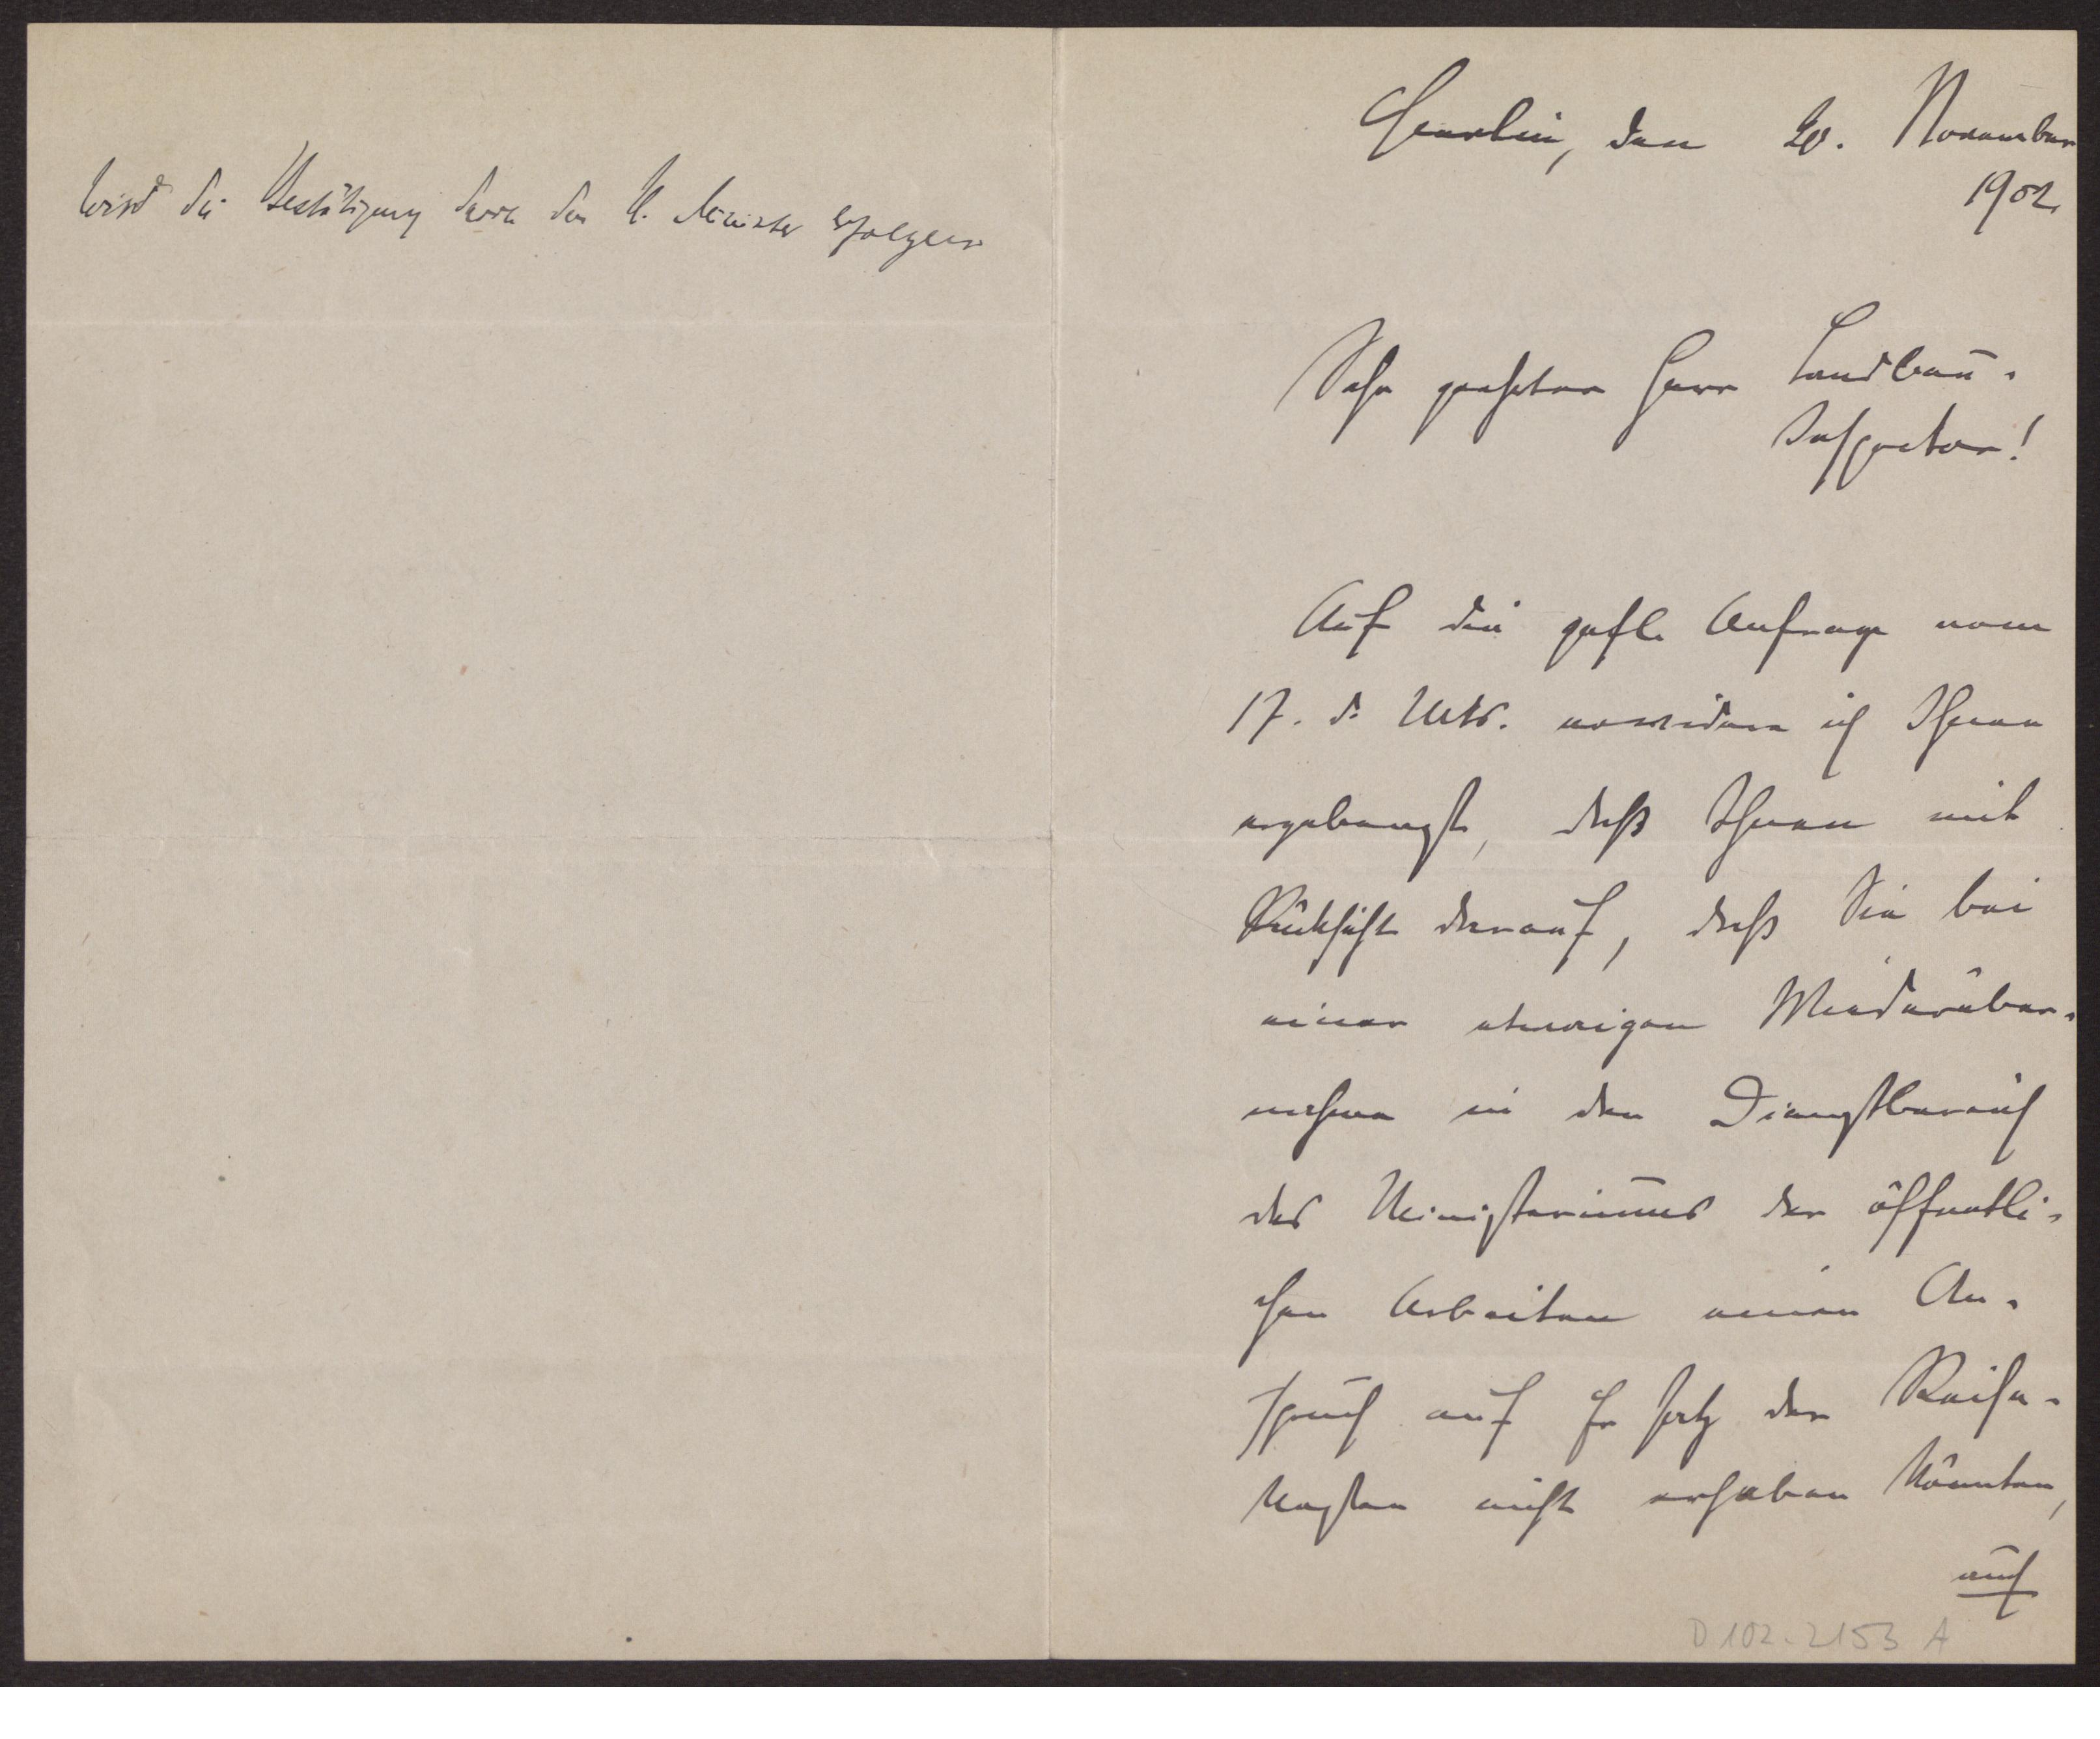 wird die Bestätigung durch den H. Minister erfolgen
Berlin, den 20. November
1902.
Sehr geehrter Herr Landbau-
Inspector!
Auf die gefl. Anfrage vom
17. d. Mts. erwidere ich Ihnen
ergebenst, daß Ihnen mit
Rücksicht darauf, daß Sie bei
einer etwaigen Wiederüber-
nahme in den Dienstbereich
des Ministeriums der öffentli-
chen Arbeiten einen An-
spruch auf Ersatz der Reise-
kosten nicht erheben könnten,
auch
D 102.2153 A